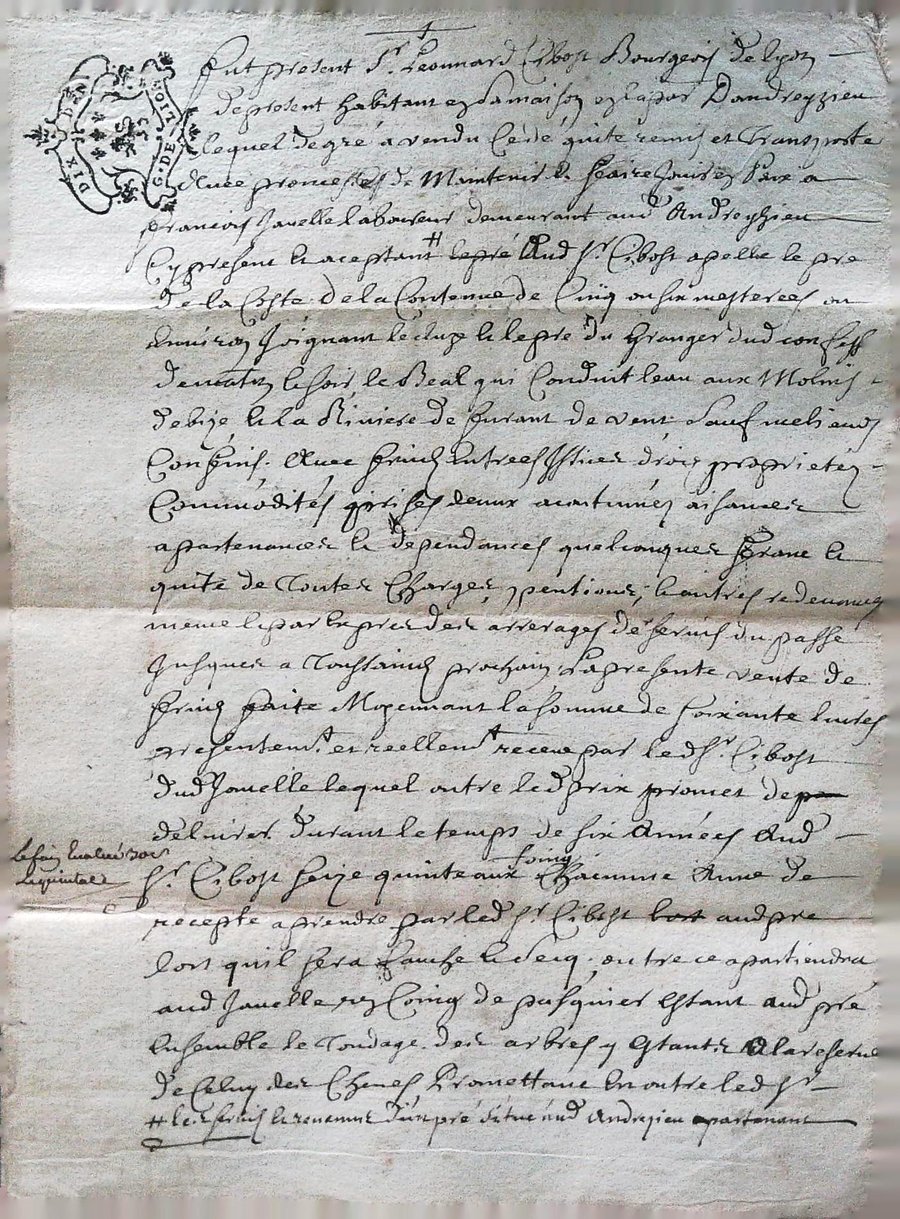 DIX DEN
G. DE LIO
Fut present Sr. Leonnard Cibost Bourgeois de lyon
de present habitant en sa maison en la par Dandreyzieu
lequel de gré a vendu Cédé quité remis et Transporté
Avec promesses de Maintenir & faire Jouir en paix a
francois Javelle laboureur demeurant aud Andreyzieu
Cy present & aceptant # le pré Aud Sr. Cibost apellé le pre
de la Coste de la Contenue de Cinq ou six mesterees ou
Environ Joignant le & le pre du Granger dud
de matin le soir, le Beal qui Conduit leau aux Molins
de bize & la Riviere de furant de vent Sauf melieurs
Confins. Avec fruits Entrees Issues droits proprietés
Commodités prises deaux acoutumées aisances
apartenances & dependances quelconques franc &
quite de Toutes Charges, pentions, & autres redevances
même & par Exprés des arrerages de servis du passé
Jusques a Toussaincts prochain, La presente vente de
fruits faite Moyennant la somme de soixante livres
presentemt. et reellemt receue par led Sr. Cibost
dud Javelle lequel outre led prix promet de
délivrer durant le temps de six Années Aud
le foin Evalué 30s
le quintal
Sr. Cibost seize quinteaux foing Chacunne Anne de
recepte a prendre par led Sr Cibost aud pre
lors quil sera fauché & secq. outre ce apartiendra
aud Javelle un Coing de pasquier Estant Aud pré
Ensemble le Tondage des arbres y Estants A la reserve
de Celuy des Chenes Promettant En outre led Sr
# les fruits & revenus d'un pré situé aud Andrezieu apartenant